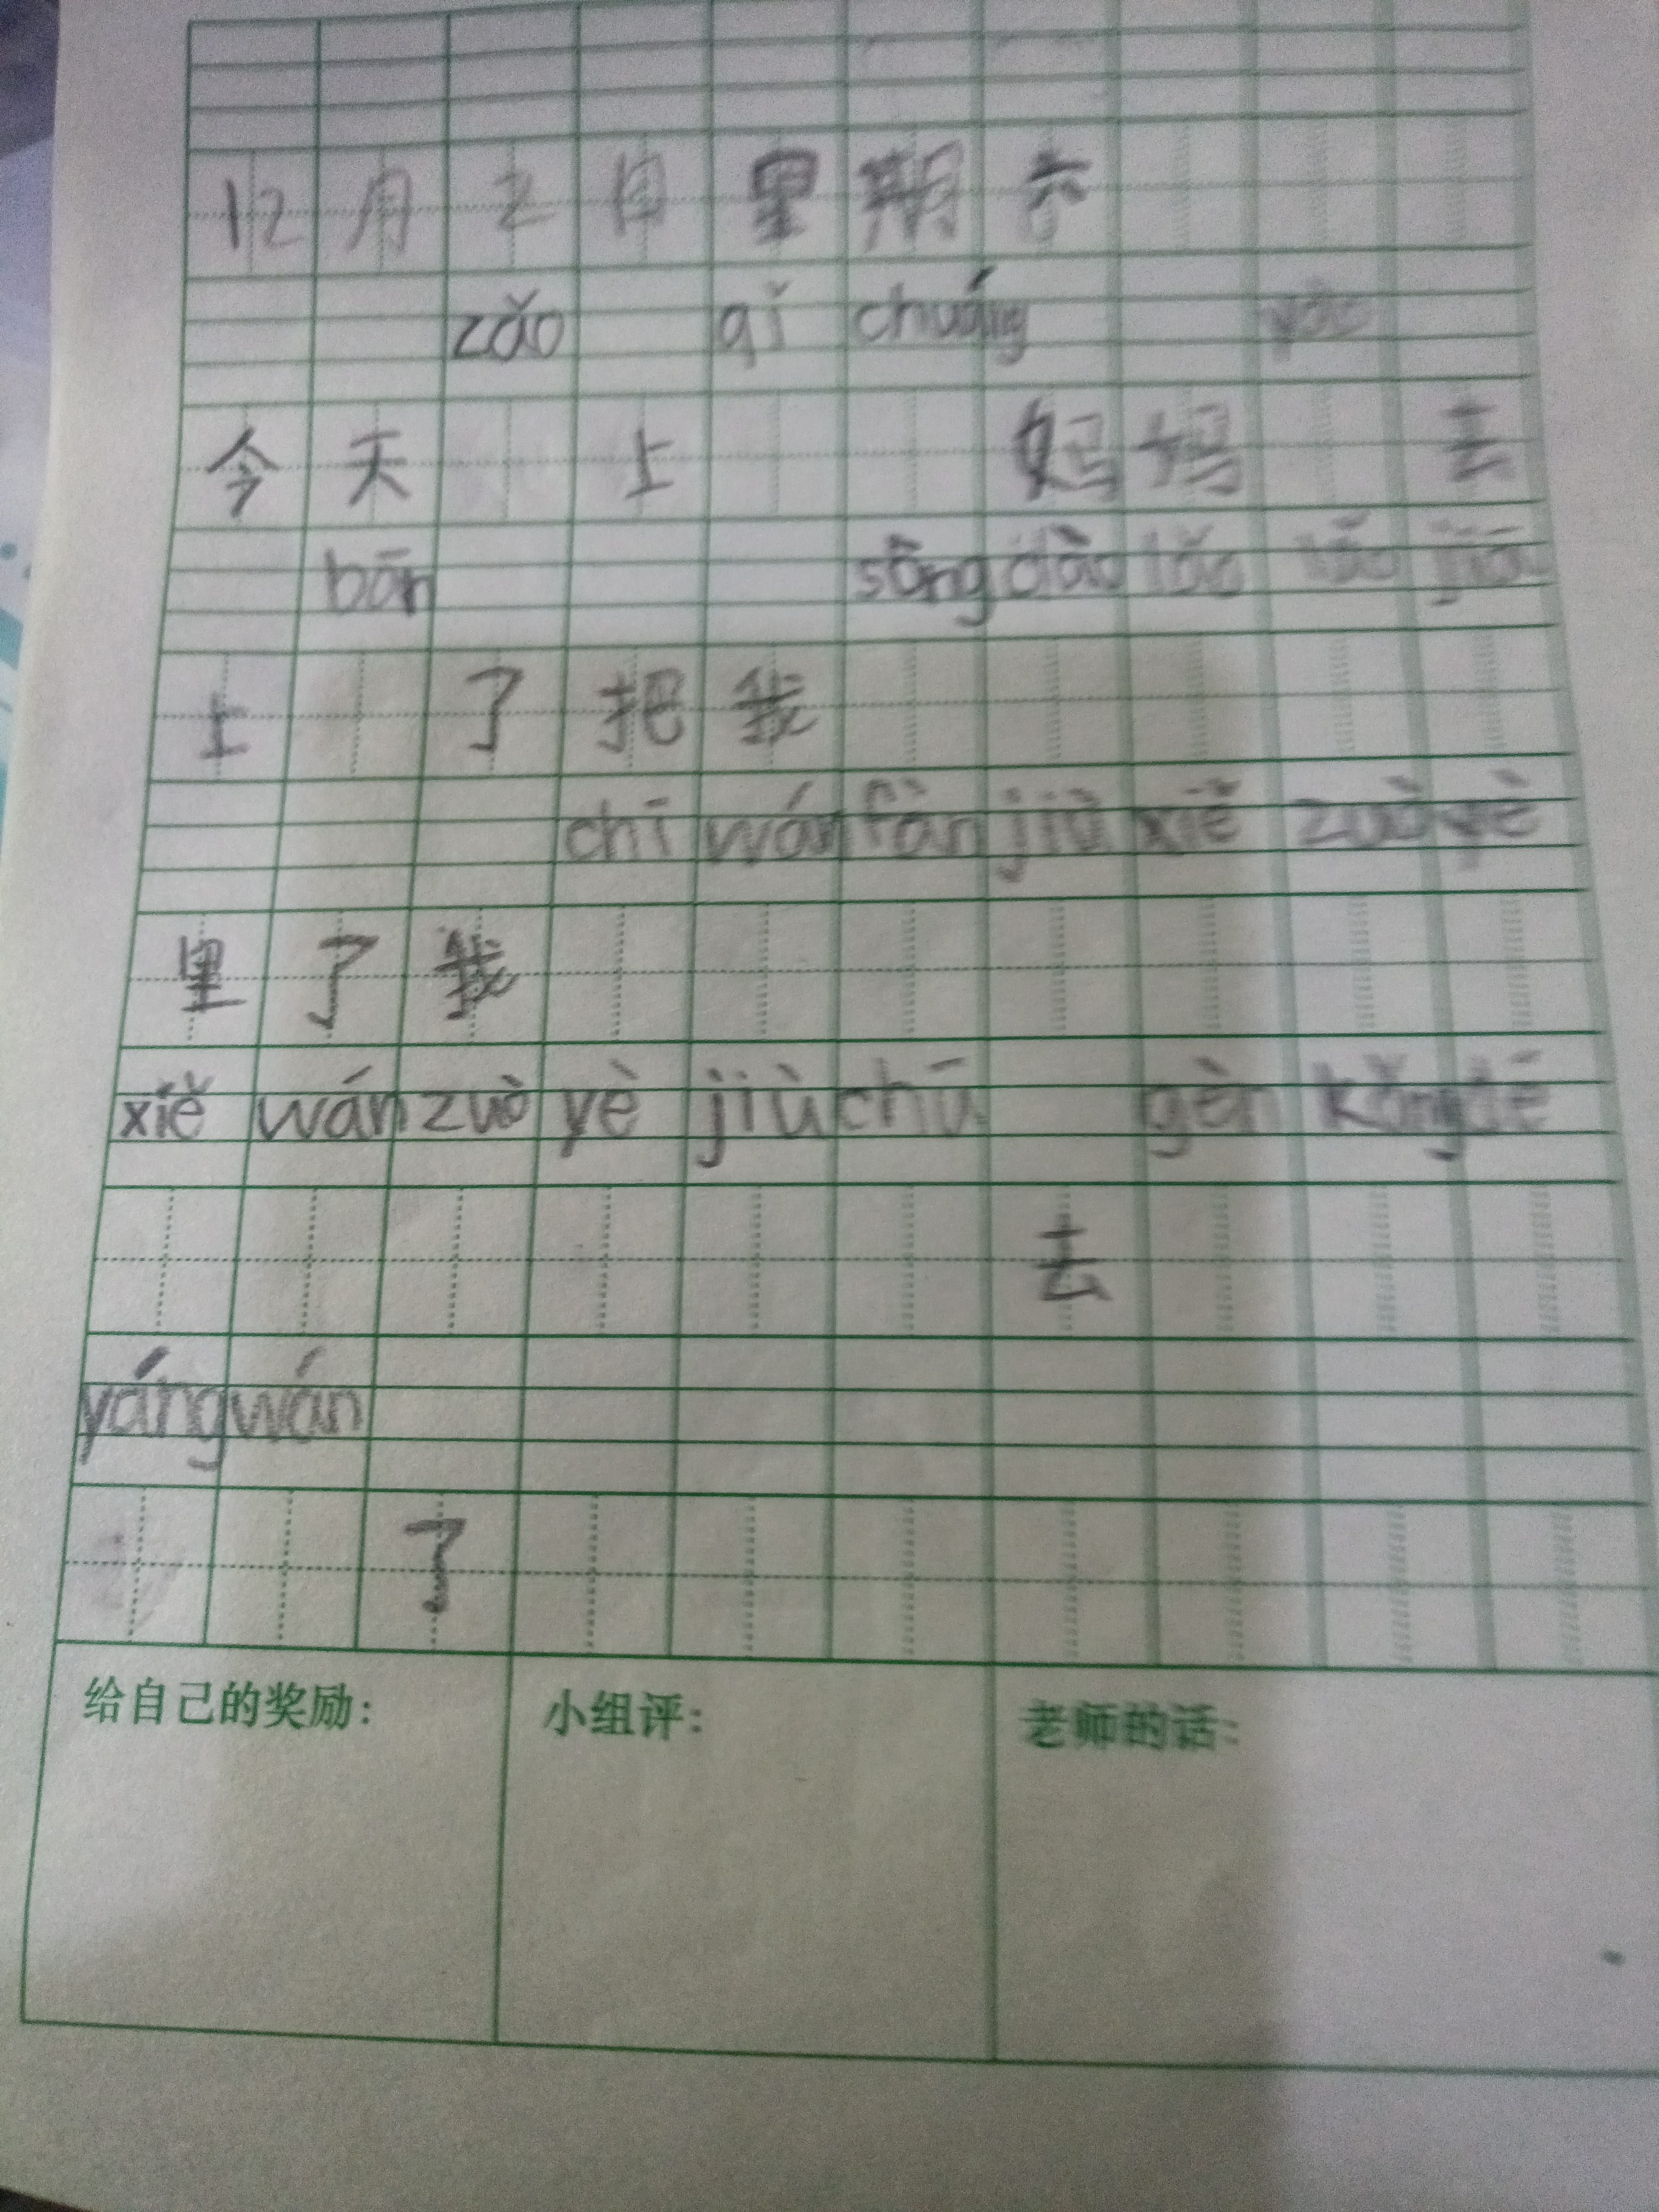 12月2日里期六
zǎo qǐ chuáng yào
今天 上 妈妈 去
bān sòng dào lǎo lao jiā
上 了把我
chī wán fàn jiù xiě zuò yè
里了我
xiě wán zuò yè jiù chū gèn kǒng dé
去
yáng wán
了
给自己的奖励: 小组评: 老师的话: